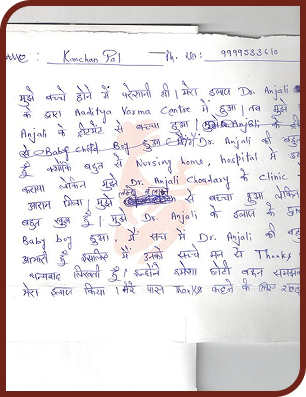 Kanchan Pal Ph. no: 9999533610
मुझे बच्चे होने में परेशानी थी। मेरा इलाज Dr. Anjali
के द्वारा Aaditya Varma Centre में हुआ। तब मुझे
Anjali के ट्रीटमेंट से बच्चा हुआ।
से Baby child Boy हुआ Dr. Anjali की बहुत
हूँ क्योंकि बहुत से Nursing home, hospital में
कराया लेकिन मुझे Dr. Anjali Choadary के Clinic
आराम मिला। मुझे से बच्चा हुआ
बहुत खुश हूँ। मुझे Dr. Anjali के इलाज के
Baby boy हुआ। मैं सच में Dr. Anjali की
आभारी हूँ इसलिए मैं उनको सच्चे मन से Thanks
धन्यवाद हूँ। इन्होंने हमेशा छोटी बहन
मेरा इलाज किया। मेरे पास Thanks कहने के लिए